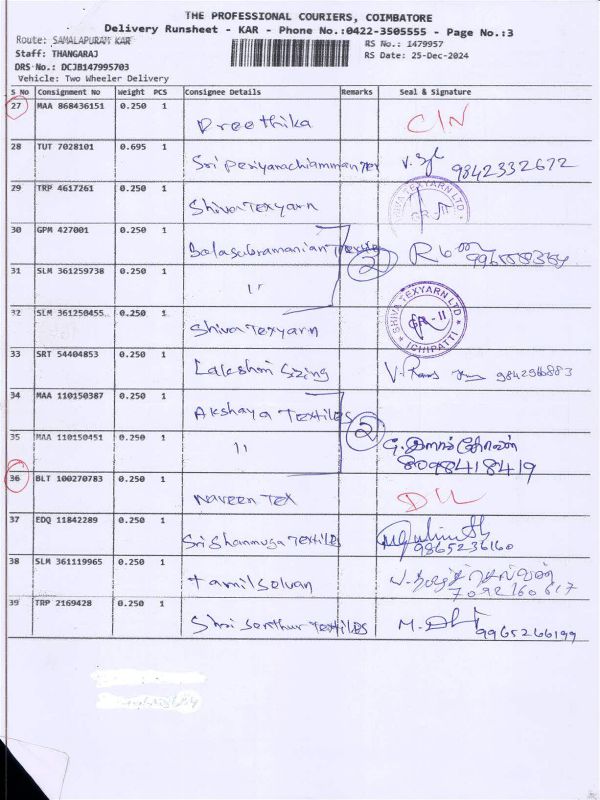 THE PROFESSIONAL COURIERS, COIMBATORE
Delivery Runsheet - KAR - Phone No.:0422-3505555 - Page No.:3
Route: SAMALAPURAM KAR
RS No.: 1479957
Staff: THANGARAJ
RS Date: 25-Dec-2024
DRS No.: DCJB147995703
Vehicle: Two Wheeler Delivery
S No Consignment No Weight PCS Consignee Details Remarks Seal & Signature
27 MAA 868436151 0.250 1 Preethika C/N
28 TUT 7028101 0.695 1 Sri periyanachiamman Tex 9842332672
29 TRP 4617261 0.250 1 Shiva Texyarn SHIVA TEXYARN LTD
30 GPM 427001 0.250 1 Balasubramanian Textile 2
31 SLM 361259738 0.250 1 "
32 SLM 361250455 0.250 1 Shiva Texyarn SHIVA TEXYARN LTD GR-II ICHIPATTI
33 SRT 54404853 0.250 1 Lakshmi Sizing V.
34 MAA 110150387 0.250 1 Akshaya Textiles 2
35 MAA 110150451 0.250 1 "
36 BLT 100270783 0.250 1 Naveen Tex D/L
37 EDQ 11842289 0.250 1 Sri Shanmuga Textiles 9865236160
38 SLM 361119965 0.250 1 Tamilselvan 7092160617
39 TRP 2169428 0.250 1 Shri Senthur Textiles M. 9965266199